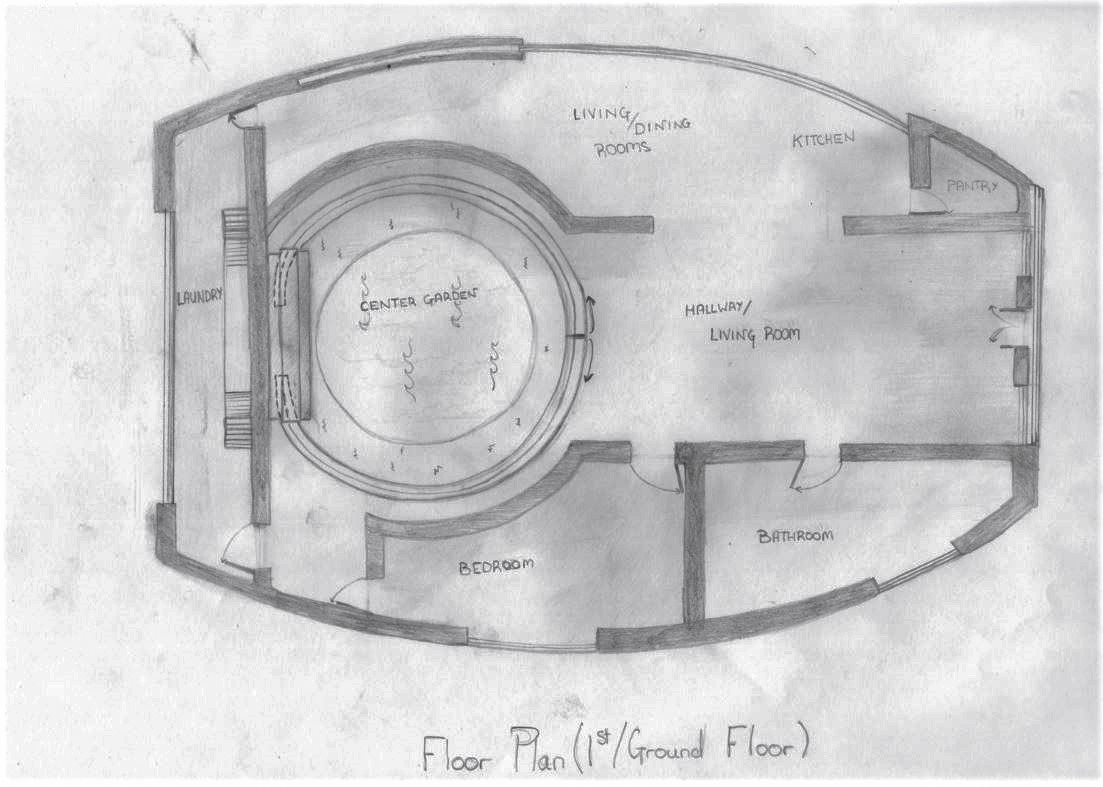 LIVING/DINING
ROOMS
KITCHEN
PANTRY
LAUNDRY
CENTER GARDEN
HALLWAY/
LIVING ROOM
BEDROOM
BATHROOM
Floor Plan (1st/Ground Floor)